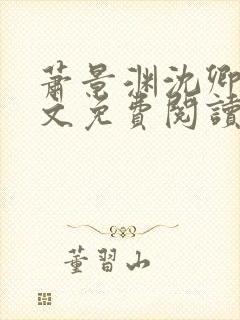 萧景渊沈卿
文免费阅读
董習山